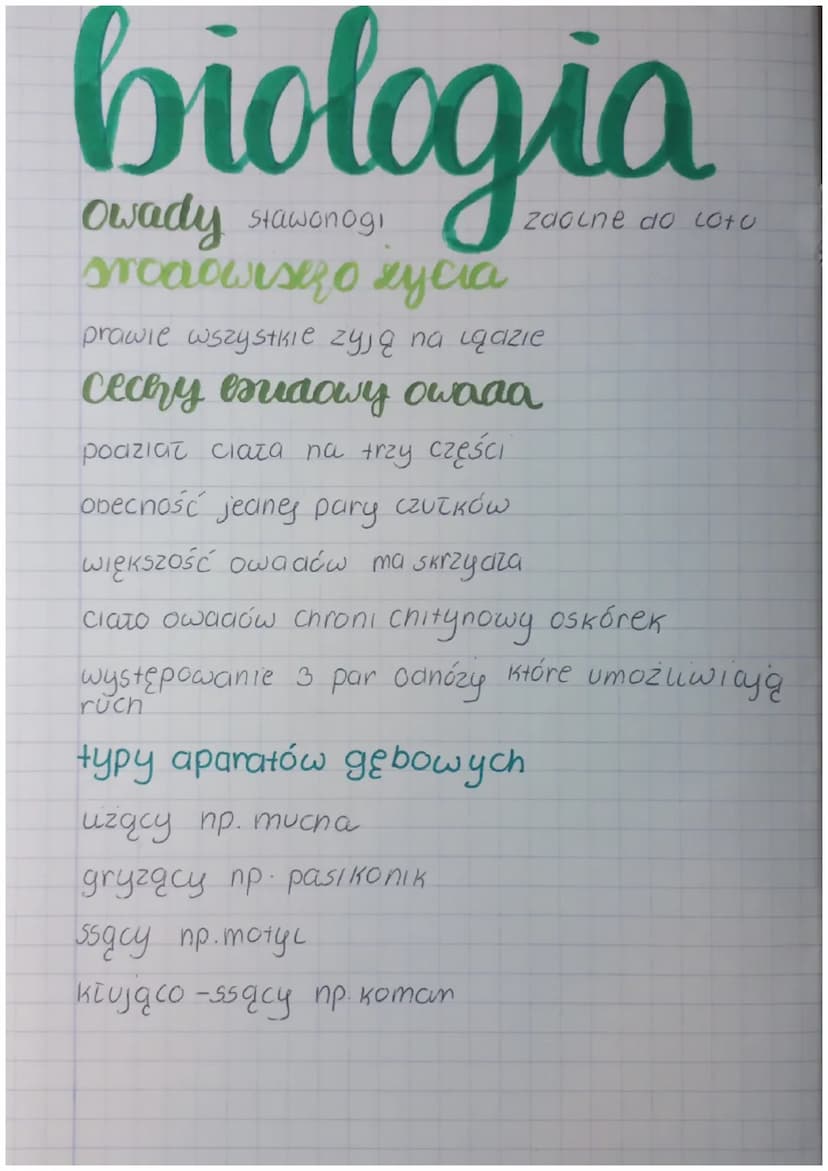 biologia
owady stawonogi zdolne do lotu
środowisko życia
prawie wszystkie żyją na lądzie
cechy budowy owada
podział ciała na trzy części
obecność jednej pary czułków
większość owadów ma skrzydła
ciało owadów chroni chitynowy oskórek
występowanie 3 par odnóży które umożliwiają
ruch
typy aparatów gębowych
liżący np. mucha
gryzący np. pasikonik
ssący np. motyl
kłująco-ssący np. komar